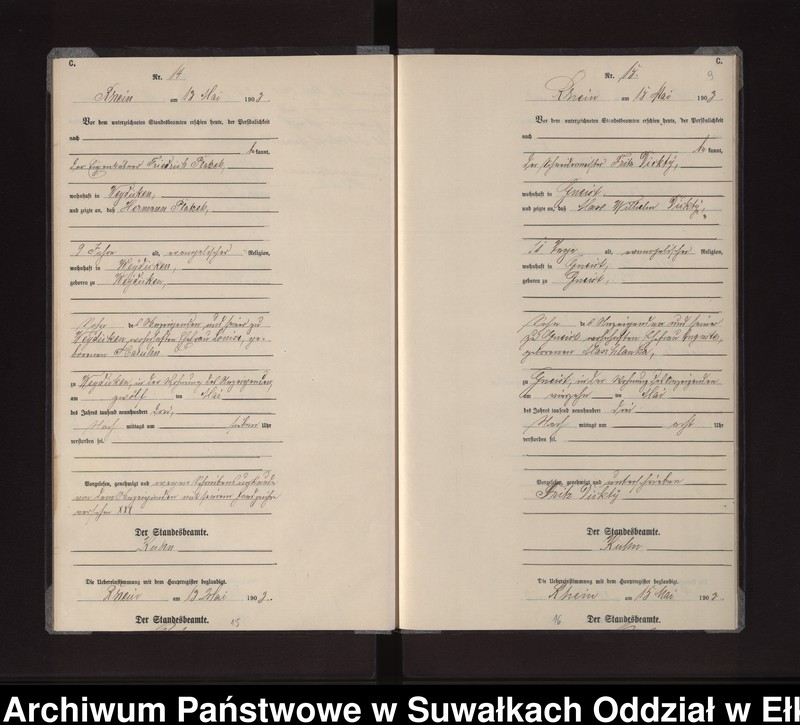 C.
Nr. 14.
Rhein am 13 Mai 1903.
Vor dem unterzeichneten Standesbeamten erschien heute, der Persönlichkeit
nach
be kannt,
der Eigenkätner Friedrich
wohnhaft in Weydicken,
und zeigte an, daß Hermann
9 Jahre alt, evangelischer Religion,
wohnhaft in Weydicken,
geboren zu Weydicken,
Sohn des Anzeigenden und seiner zu
Weydicken wohnhaften Ehefrau Louise, ge-
borenen
zu Weydicken, in der Wohnung des Anzeigenden,
am zwölf ten Mai
des Jahres tausend neunhundert drei,
Nach mittags um sieben Uhr
verstorben sei.
Vorgelesen, genehmigt und wegen Schreibensunkunde
von dem Anzeigenden mit seinem Handzeichen
versehen XXX
Der Standesbeamte.
Kuhn
Die Uebereinstimmung mit dem Hauptregister beglaubigt.
Rhein am 13 Mai 1903.
Der Standesbeamte.
15
C.
9
Nr. 15.
Rhein am 15 Mai 1903.
Vor dem unterzeichneten Standesbeamten erschien heute, der Persönlichkeit
nach
be kannt,
der Schneidermeister Fritz Dickty,
wohnhaft in Gneist,
und zeigte an, daß Wilhelm Dickty,
Tage alt, evangelischer Religion,
wohnhaft in Gneist,
geboren zu Gneist,
Sohn des Anzeigenden und seiner
zu Gneist wohnhaften Ehefrau Auguste,
geborenen
zu Gneist, in der Wohnung des Anzeigenden
am vierzehn ten Mai
des Jahres tausend neunhundert drei
Nach mittags um acht Uhr
verstorben sei.
Vorgelesen, genehmigt und unterschrieben
Fritz Dickty
Der Standesbeamte.
Kuhn
Die Uebereinstimmung mit dem Hauptregister beglaubigt.
Rhein am 15 Mai 1903.
Der Standesbeamte.
16
Archiwum Państwowe w Suwałkach Oddział w Eł